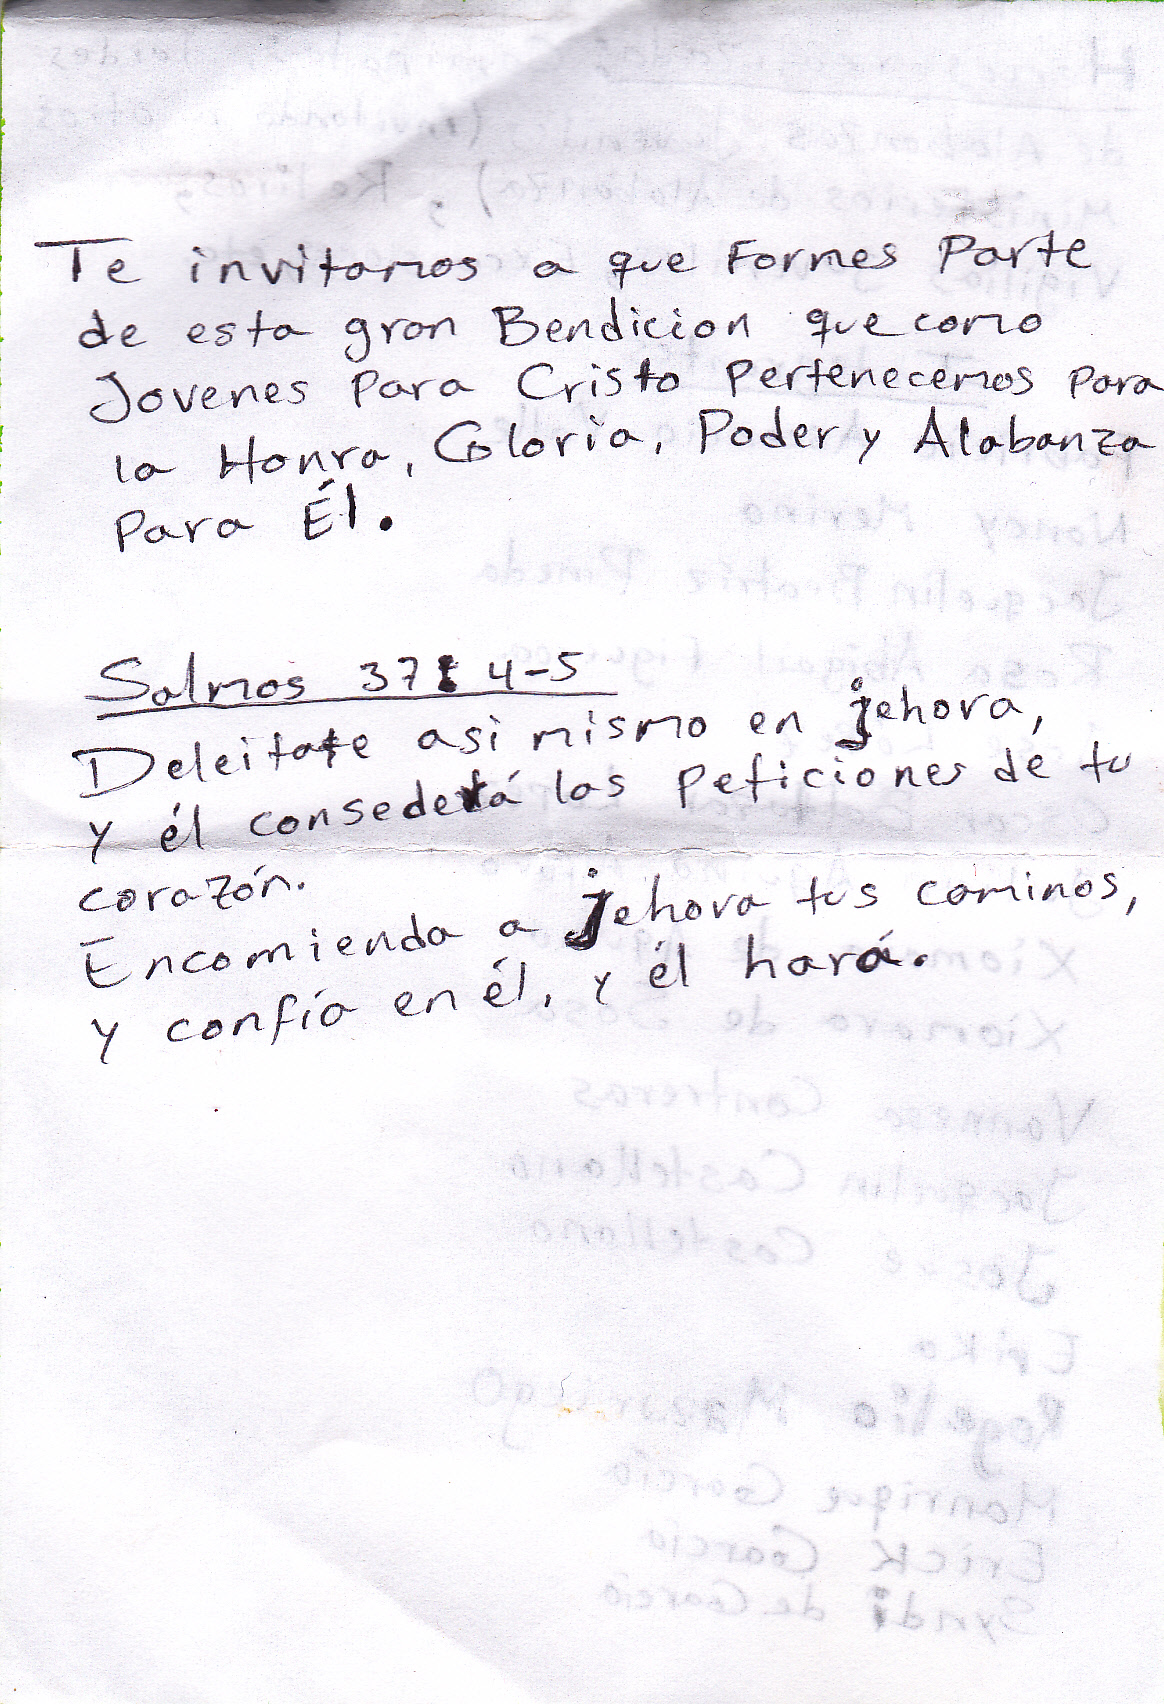 Te invitamos a que Formes Parte
de esta gran Bendicion que como
Jovenes Para Cristo Pertenecemos Para
la Honra, Gloria, Poder y Alabanza
Para Él.
Salmos 37: 4-5
Deleitate asi mismo en jehova,
y él consederá las Peticiones de tu
corazón.
Encomienda a jehova tus caminos,
y confía en él, y él hará.